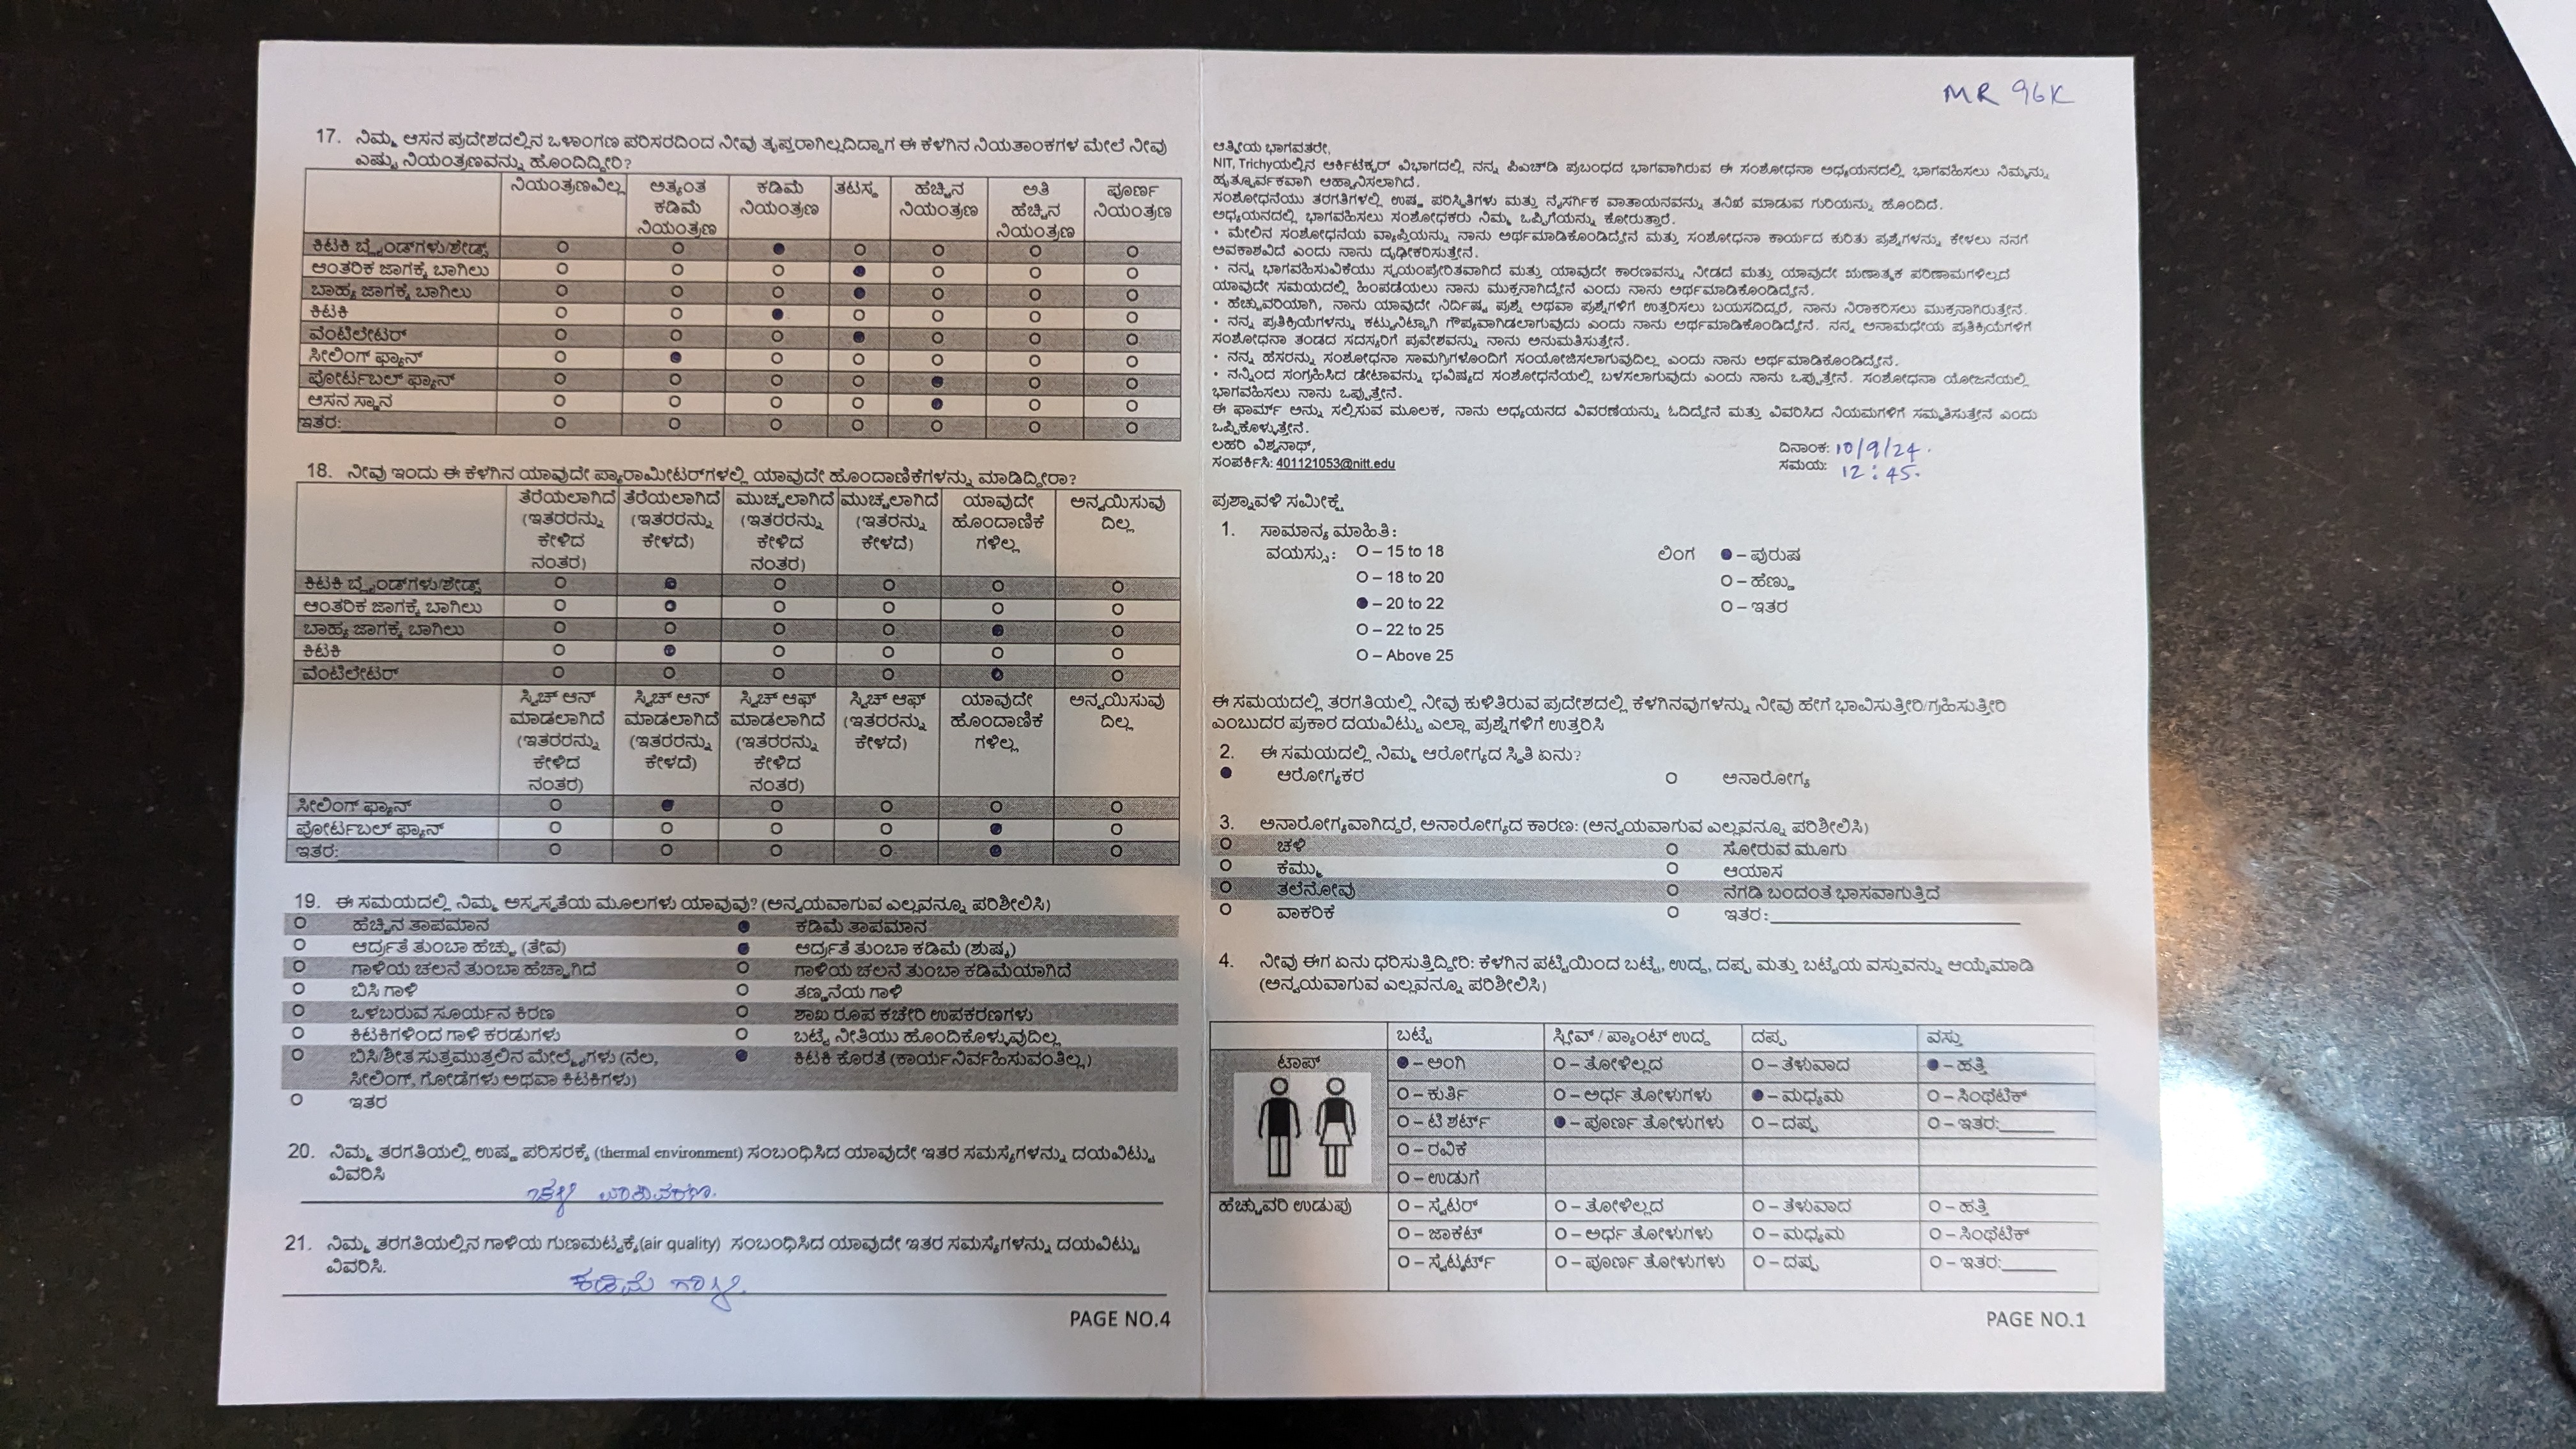 17. ನಿಮ್ಮ ಆಸನ ಪ್ರದೇಶದಲ್ಲಿನ ಒಳಾಂಗಣ ಪರಿಸರದಿಂದ ನೀವು ತೃಪ್ತರಾಗಿಲ್ಲದಿದ್ದಾಗ ಈ ಕೆಳಗಿನ ನಿಯತಾಂಕಗಳ ಮೇಲೆ ನೀವು
ಎಷ್ಟು ನಿಯಂತ್ರಣವನ್ನು ಹೊಂದಿದ್ದೀರಿ?
ನಿಯಂತ್ರಣವಿಲ್ಲ ಅತ್ಯಂತ ಕಡಿಮೆ ನಿಯಂತ್ರಣ ಕಡಿಮೆ ನಿಯಂತ್ರಣ ತಟಸ್ಥ ಹೆಚ್ಚಿನ ನಿಯಂತ್ರಣ ಅತಿ ಹೆಚ್ಚಿನ ನಿಯಂತ್ರಣ ಪೂರ್ಣ ನಿಯಂತ್ರಣ
ಕಿಟಕಿ ಬ್ಲೈಂಡ್‌ಗಳು/ಶೇಡ್ಸ್
ಆಂತರಿಕ ಜಾಗಕ್ಕೆ ಬಾಗಿಲು
ಬಾಹ್ಯ ಜಾಗಕ್ಕೆ ಬಾಗಿಲು
ಕಿಟಕಿ
ವೆಂಟಿಲೇಟರ್
ಸೀಲಿಂಗ್ ಫ್ಯಾನ್
ಪೋರ್ಟಬಲ್ ಫ್ಯಾನ್
ಆಸನ ಸ್ಥಾನ
ಇತರ:
18. ನೀವು ಇಂದು ಈ ಕೆಳಗಿನ ಯಾವುದೇ ಪ್ಯಾರಾಮೀಟರ್‌ಗಳಲ್ಲಿ ಯಾವುದೇ ಹೊಂದಾಣಿಕೆಗಳನ್ನು ಮಾಡಿದ್ದೀರಾ?
ತೆರೆಯಲಾಗಿದೆ (ಇತರರನ್ನು ಕೇಳಿದ ನಂತರ) ತೆರೆಯಲಾಗಿದೆ (ಇತರರನ್ನು ಕೇಳದೆ) ಮುಚ್ಚಲಾಗಿದೆ (ಇತರರನ್ನು ಕೇಳಿದ ನಂತರ) ಮುಚ್ಚಲಾಗಿದೆ (ಇತರನ್ನು ಕೇಳದೆ) ಯಾವುದೇ ಹೊಂದಾಣಿಕೆ ಗಳಿಲ್ಲ ಅನ್ವಯಿಸುವು ದಿಲ್ಲ
ಕಿಟಕಿ ಬ್ಲೈಂಡ್‌ಗಳು/ಶೇಡ್ಸ್
ಆಂತರಿಕ ಜಾಗಕ್ಕೆ ಬಾಗಿಲು
ಬಾಹ್ಯ ಜಾಗಕ್ಕೆ ಬಾಗಿಲು
ಕಿಟಕಿ
ವೆಂಟಿಲೇಟರ್
ಸ್ವಿಚ್ ಆನ್ ಮಾಡಲಾಗಿದೆ (ಇತರರನ್ನು ಕೇಳಿದ ನಂತರ) ಸ್ವಿಚ್ ಆನ್ ಮಾಡಲಾಗಿದೆ (ಇತರರನ್ನು ಕೇಳದೆ) ಸ್ವಿಚ್ ಆಫ್ ಮಾಡಲಾಗಿದೆ (ಇತರರನ್ನು ಕೇಳಿದ ನಂತರ) ಸ್ವಿಚ್ ಆಫ್ (ಇತರರನ್ನು ಕೇಳದೆ) ಯಾವುದೇ ಹೊಂದಾಣಿಕೆ ಗಳಿಲ್ಲ ಅನ್ವಯಿಸುವು ದಿಲ್ಲ
ಸೀಲಿಂಗ್ ಫ್ಯಾನ್
ಪೋರ್ಟಬಲ್ ಫ್ಯಾನ್
ಇತರ:
19. ಈ ಸಮಯದಲ್ಲಿ ನಿಮ್ಮ ಅಸ್ವಸ್ಥತೆಯ ಮೂಲಗಳು ಯಾವುವು? (ಅನ್ವಯವಾಗುವ ಎಲ್ಲವನ್ನೂ ಪರಿಶೀಲಿಸಿ)
ಹೆಚ್ಚಿನ ತಾಪಮಾನ ಕಡಿಮೆ ತಾಪಮಾನ
ಆರ್ದ್ರತೆ ತುಂಬಾ ಹೆಚ್ಚು (ತೇವ) ಆರ್ದ್ರತೆ ತುಂಬಾ ಕಡಿಮೆ (ಶುಷ್ಕ)
ಗಾಳಿಯ ಚಲನೆ ತುಂಬಾ ಹೆಚ್ಚಾಗಿದೆ ಗಾಳಿಯ ಚಲನೆ ತುಂಬಾ ಕಡಿಮೆಯಾಗಿದೆ
ಬಿಸಿ ಗಾಳಿ ತಣ್ಣನೆಯ ಗಾಳಿ
ಒಳಬರುವ ಸೂರ್ಯನ ಕಿರಣ ಶಾಖ ರೂಪ ಕಚೇರಿ ಉಪಕರಣಗಳು
ಕಿಟಕಿಗಳಿಂದ ಗಾಳಿ ಕರಡುಗಳು ಬಟ್ಟೆ ನೀತಿಯು ಹೊಂದಿಕೊಳ್ಳುವುದಿಲ್ಲ
ಬಿಸಿ/ಶೀತ ಸುತ್ತಮುತ್ತಲಿನ ಮೇಲ್ಮೈಗಳು (ನೆಲ, ಕಿಟಕಿ ಕೊರತೆ (ಕಾರ್ಯನಿರ್ವಹಿಸುವಂತಿಲ್ಲ)
ಸೀಲಿಂಗ್, ಗೋಡೆಗಳು ಅಥವಾ ಕಿಟಕಿಗಳು)
ಇತರ
20. ನಿಮ್ಮ ತರಗತಿಯಲ್ಲಿ ಉಷ್ಣ ಪರಿಸರಕ್ಕೆ (thermal environment) ಸಂಬಂಧಿಸಿದ ಯಾವುದೇ ಇತರ ಸಮಸ್ಯೆಗಳನ್ನು ದಯವಿಟ್ಟು
ವಿವರಿಸಿ
ಚಳಿ ವಾತಾವರಣ.
21. ನಿಮ್ಮ ತರಗತಿಯಲ್ಲಿನ ಗಾಳಿಯ ಗುಣಮಟ್ಟಕ್ಕೆ(air quality) ಸಂಬಂಧಿಸಿದ ಯಾವುದೇ ಇತರ ಸಮಸ್ಯೆಗಳನ್ನು ದಯವಿಟ್ಟು
ವಿವರಿಸಿ.
ಕಡಿಮೆ ಗಾಳಿ.
PAGE NO.4
MR 96K
ಆತ್ಮೀಯ ಭಾಗವತರೇ,
NIT, Trichyಯಲ್ಲಿನ ಆರ್ಕಿಟೆಕ್ಚರ್ ವಿಭಾಗದಲ್ಲಿ ನನ್ನ ಪಿಎಚ್‌ಡಿ ಪ್ರಬಂಧದ ಭಾಗವಾಗಿರುವ ಈ ಸಂಶೋಧನಾ ಅಧ್ಯಯನದಲ್ಲಿ ಭಾಗವಹಿಸಲು ನಿಮ್ಮನ್ನು
ಹೃತ್ಪೂರ್ವಕವಾಗಿ ಆಹ್ವಾನಿಸಲಾಗಿದೆ.
ಸಂಶೋಧನೆಯು ತರಗತಿಗಳಲ್ಲಿ ಉಷ್ಣ ಪರಿಸ್ಥಿತಿಗಳು ಮತ್ತು ನೈಸರ್ಗಿಕ ವಾತಾಯನವನ್ನು ತನಿಖೆ ಮಾಡುವ ಗುರಿಯನ್ನು ಹೊಂದಿದೆ.
ಅಧ್ಯಯನದಲ್ಲಿ ಭಾಗವಹಿಸಲು ಸಂಶೋಧಕರು ನಿಮ್ಮ ಒಪ್ಪಿಗೆಯನ್ನು ಕೋರುತ್ತಾರೆ.
• ಮೇಲಿನ ಸಂಶೋಧನೆಯ ವ್ಯಾಪ್ತಿಯನ್ನು ನಾನು ಅರ್ಥಮಾಡಿಕೊಂಡಿದ್ದೇನೆ ಮತ್ತು ಸಂಶೋಧನಾ ಕಾರ್ಯದ ಕುರಿತು ಪ್ರಶ್ನೆಗಳನ್ನು ಕೇಳಲು ನನಗೆ
ಅವಕಾಶವಿದೆ ಎಂದು ನಾನು ದೃಢೀಕರಿಸುತ್ತೇನೆ.
• ನನ್ನ ಭಾಗವಹಿಸುವಿಕೆಯು ಸ್ವಯಂಪ್ರೇರಿತವಾಗಿದೆ ಮತ್ತು ಯಾವುದೇ ಕಾರಣವನ್ನು ನೀಡದೆ ಮತ್ತು ಯಾವುದೇ ಋಣಾತ್ಮಕ ಪರಿಣಾಮಗಳಿಲ್ಲದೆ
ಯಾವುದೇ ಸಮಯದಲ್ಲಿ ಹಿಂಪಡೆಯಲು ನಾನು ಮುಕ್ತನಾಗಿದ್ದೇನೆ ಎಂದು ನಾನು ಅರ್ಥಮಾಡಿಕೊಂಡಿದ್ದೇನೆ.
• ಹೆಚ್ಚುವರಿಯಾಗಿ, ನಾನು ಯಾವುದೇ ನಿರ್ದಿಷ್ಟ ಪ್ರಶ್ನೆ ಅಥವಾ ಪ್ರಶ್ನೆಗಳಿಗೆ ಉತ್ತರಿಸಲು ಬಯಸದಿದ್ದರೆ, ನಾನು ನಿರಾಕರಿಸಲು ಮುಕ್ತನಾಗಿರುತ್ತೇನೆ.
• ನನ್ನ ಪ್ರತಿಕ್ರಿಯೆಗಳನ್ನು ಕಟ್ಟುನಿಟ್ಟಾಗಿ ಗೌಪ್ಯವಾಗಿಡಲಾಗುವುದು ಎಂದು ನಾನು ಅರ್ಥಮಾಡಿಕೊಂಡಿದ್ದೇನೆ. ನನ್ನ ಅನಾಮಧೇಯ ಪ್ರತಿಕ್ರಿಯೆಗಳಿಗೆ
ಸಂಶೋಧನಾ ತಂಡದ ಸದಸ್ಯರಿಗೆ ಪ್ರವೇಶವನ್ನು ನಾನು ಅನುಮತಿಸುತ್ತೇನೆ.
• ನನ್ನ ಹೆಸರನ್ನು ಸಂಶೋಧನಾ ಸಾಮಗ್ರಿಗಳೊಂದಿಗೆ ಸಂಯೋಜಿಸಲಾಗುವುದಿಲ್ಲ ಎಂದು ನಾನು ಅರ್ಥಮಾಡಿಕೊಂಡಿದ್ದೇನೆ.
• ನನ್ನಿಂದ ಸಂಗ್ರಹಿಸಿದ ಡೇಟಾವನ್ನು ಭವಿಷ್ಯದ ಸಂಶೋಧನೆಯಲ್ಲಿ ಬಳಸಲಾಗುವುದು ಎಂದು ನಾನು ಒಪ್ಪುತ್ತೇನೆ. ಸಂಶೋಧನಾ ಯೋಜನೆಯಲ್ಲಿ
ಭಾಗವಹಿಸಲು ನಾನು ಒಪ್ಪುತ್ತೇನೆ.
ಈ ಫಾರ್ಮ್ ಅನ್ನು ಸಲ್ಲಿಸುವ ಮೂಲಕ, ನಾನು ಅಧ್ಯಯನದ ವಿವರಣೆಯನ್ನು ಓದಿದ್ದೇನೆ ಮತ್ತು ವಿವರಿಸಿದ ನಿಯಮಗಳಿಗೆ ಸಮ್ಮತಿಸುತ್ತೇನೆ ಎಂದು
ಒಪ್ಪಿಕೊಳ್ಳುತ್ತೇನೆ.
ಲಹರಿ ವಿಶ್ವನಾಥ್,
ಸಂಪರ್ಕಿಸಿ: 401121053@nitt.edu
ದಿನಾಂಕ: 10/9/24.
ಸಮಯ: 12:45.
ಪ್ರಶ್ನಾವಳಿ ಸಮೀಕ್ಷೆ
1. ಸಾಮಾನ್ಯ ಮಾಹಿತಿ:
ವಯಸ್ಸು: O – 15 to 18 ಲಿಂಗ – ಪುರುಷ
O – 18 to 20 O – ಹೆಣ್ಣು
– 20 to 22 O – ಇತರ
O – 22 to 25
O – Above 25
ಈ ಸಮಯದಲ್ಲಿ ತರಗತಿಯಲ್ಲಿ ನೀವು ಕುಳಿತಿರುವ ಪ್ರದೇಶದಲ್ಲಿ ಕೆಳಗಿನವುಗಳನ್ನು ನೀವು ಹೇಗೆ ಭಾವಿಸುತ್ತೀರಿ/ಗ್ರಹಿಸುತ್ತೀರಿ
ಎಂಬುದರ ಪ್ರಕಾರ ದಯವಿಟ್ಟು ಎಲ್ಲಾ ಪ್ರಶ್ನೆಗಳಿಗೆ ಉತ್ತರಿಸಿ
2. ಈ ಸಮಯದಲ್ಲಿ ನಿಮ್ಮ ಆರೋಗ್ಯದ ಸ್ಥಿತಿ ಏನು?
ಆರೋಗ್ಯಕರ ಅನಾರೋಗ್ಯ
3. ಅನಾರೋಗ್ಯವಾಗಿದ್ದರೆ, ಅನಾರೋಗ್ಯದ ಕಾರಣ: (ಅನ್ವಯವಾಗುವ ಎಲ್ಲವನ್ನೂ ಪರಿಶೀಲಿಸಿ)
ಚಳಿ ಸೋರುವ ಮೂಗು
ಕೆಮ್ಮು ಆಯಾಸ
ತಲೆನೋವು ನೆಗಡಿ ಬಂದಂತೆ ಭಾಸವಾಗುತ್ತಿದೆ
ವಾಕರಿಕೆ ಇತರ:
4. ನೀವು ಈಗ ಏನು ಧರಿಸುತ್ತಿದ್ದೀರಿ: ಕೆಳಗಿನ ಪಟ್ಟಿಯಿಂದ ಬಟ್ಟೆ, ಉದ್ದ, ದಪ್ಪ ಮತ್ತು ಬಟ್ಟೆಯ ವಸ್ತುವನ್ನು ಆಯ್ಕೆಮಾಡಿ
(ಅನ್ವಯವಾಗುವ ಎಲ್ಲವನ್ನೂ ಪರಿಶೀಲಿಸಿ)
ಬಟ್ಟೆ ಸ್ಲೀವ್ / ಪ್ಯಾಂಟ್ ಉದ್ದ ದಪ್ಪ ವಸ್ತು
ಟಾಪ್ – ಅಂಗಿ O – ತೋಳಿಲ್ಲದ O – ತೆಳುವಾದ – ಹತ್ತಿ
O – ಕುರ್ತಿ O – ಅರ್ಧ ತೋಳುಗಳು – ಮಧ್ಯಮ O – ಸಿಂಥೆಟಿಕ್
O – ಟಿ ಶರ್ಟ್ – ಪೂರ್ಣ ತೋಳುಗಳು O – ದಪ್ಪ O – ಇತರ:
O – ರವಿಕೆ
O – ಉಡುಗೆ
ಹೆಚ್ಚುವರಿ ಉಡುಪು O – ಸ್ವೆಟರ್ O – ತೋಳಿಲ್ಲದ O – ತೆಳುವಾದ O – ಹತ್ತಿ
O – ಜಾಕೆಟ್ O – ಅರ್ಧ ತೋಳುಗಳು O – ಮಧ್ಯಮ O – ಸಿಂಥೆಟಿಕ್
O – ಸ್ವೆಟ್ಶರ್ಟ್ O – ಪೂರ್ಣ ತೋಳುಗಳು O – ದಪ್ಪ O – ಇತರ:
PAGE NO.1